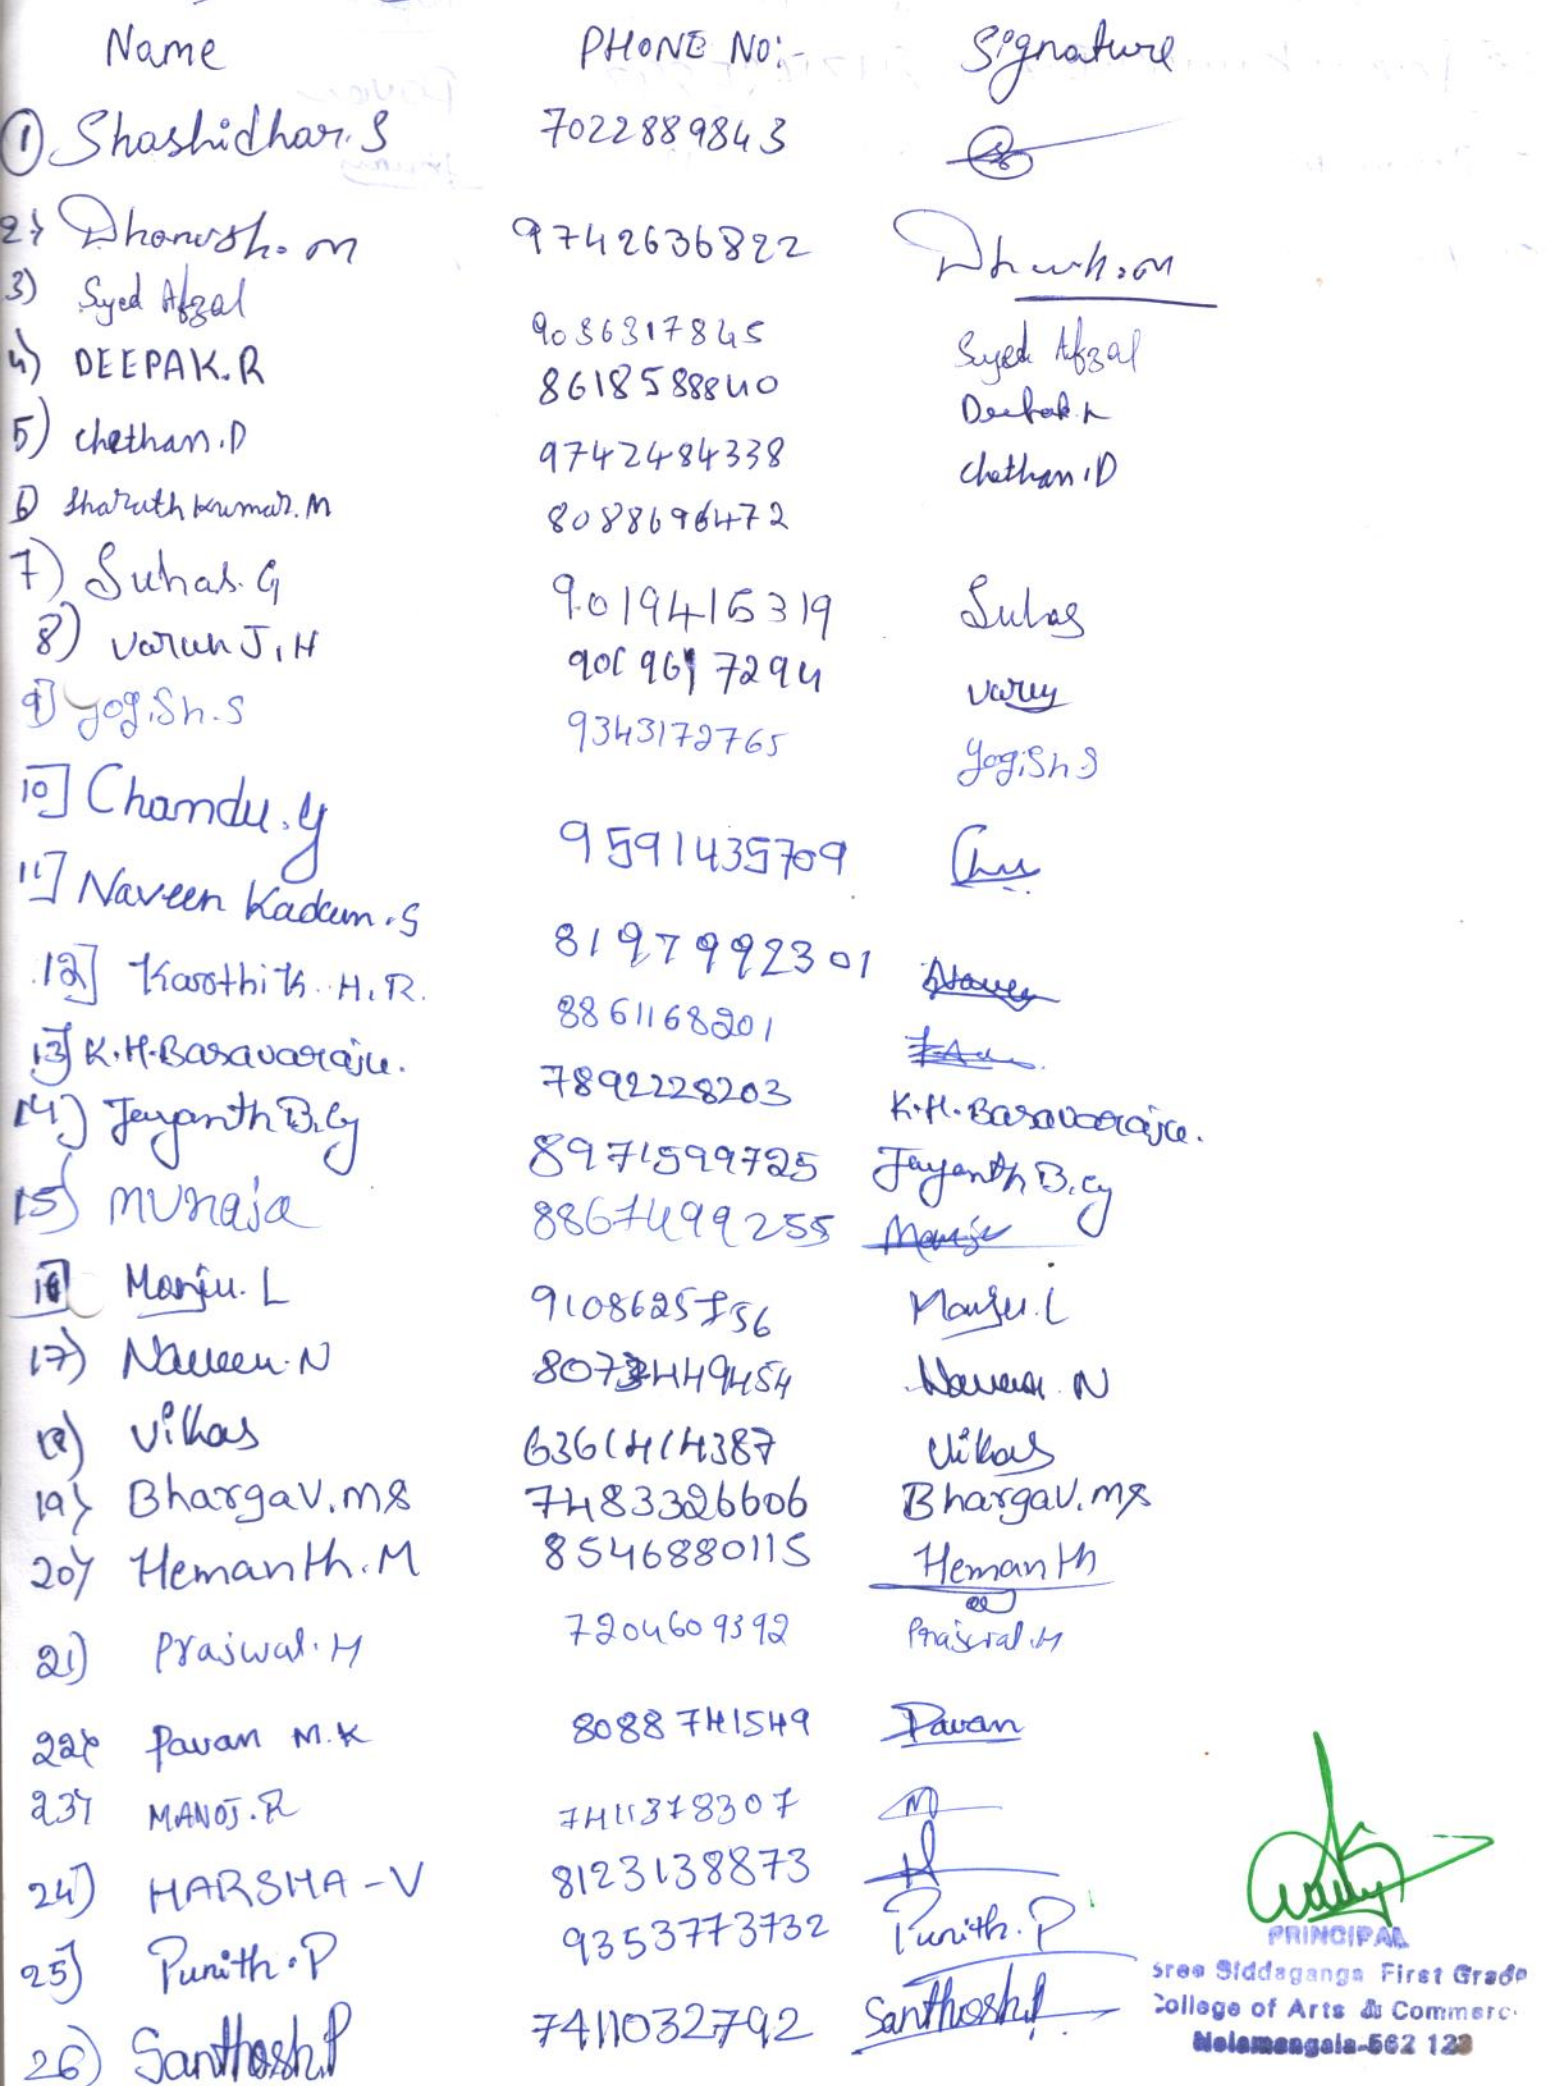 Name PHONE NO:- Signature
1) Shashidhar.S 7022889843
2) Dhanush.M 9742636822 Dhanush.M
3) Syed Afzal 9036317845 Syed Afzal
4) DEEPAK.R 8618588840 Deepak.R
5) Chethan.D 9742484338 Chethan.D
6) Sharath Kumar.M 8088696472
7) Suhas.G 9019415319 Suhas
8) Varun J.H 7294 Varun
9) yogish.S 9343172765 yogish S
10] Chandu.y 9591435709
11] Naveen Kadam.S 8197992301 Naveen
12] Karthik.H.R. 8861168201
13] K.H.Basavaraju. 7892228203 K.H.Basavaraju.
14) Jayanth B.G 8971599725 Jayanth B.G
15) MUNRAJA 8867499255
16 Manju.L 9108625756 Manju.L
17) Naveen.N 8073449454 Naveen.N
18) Vikas 6361414387 Vikas
19) Bhargav.MS 7483326606 Bhargav.MS
20) Hemanth.M 8546880115 Hemanth
21) Prajwal.H 7204609392 Prajwal.H
22) Pavan M.K 8088741549 Pavan
23) MANOJ.R 7411378307 M
24) HARSHA-V 8123138873 H
25) Punith.P 9353773732 Punith.P
26) Santhosh.P 7411032792 Santhosh.P
PRINCIPAL
Sree Siddaganga First Grade
College of Arts & Commerc
Nelamangala-562 123